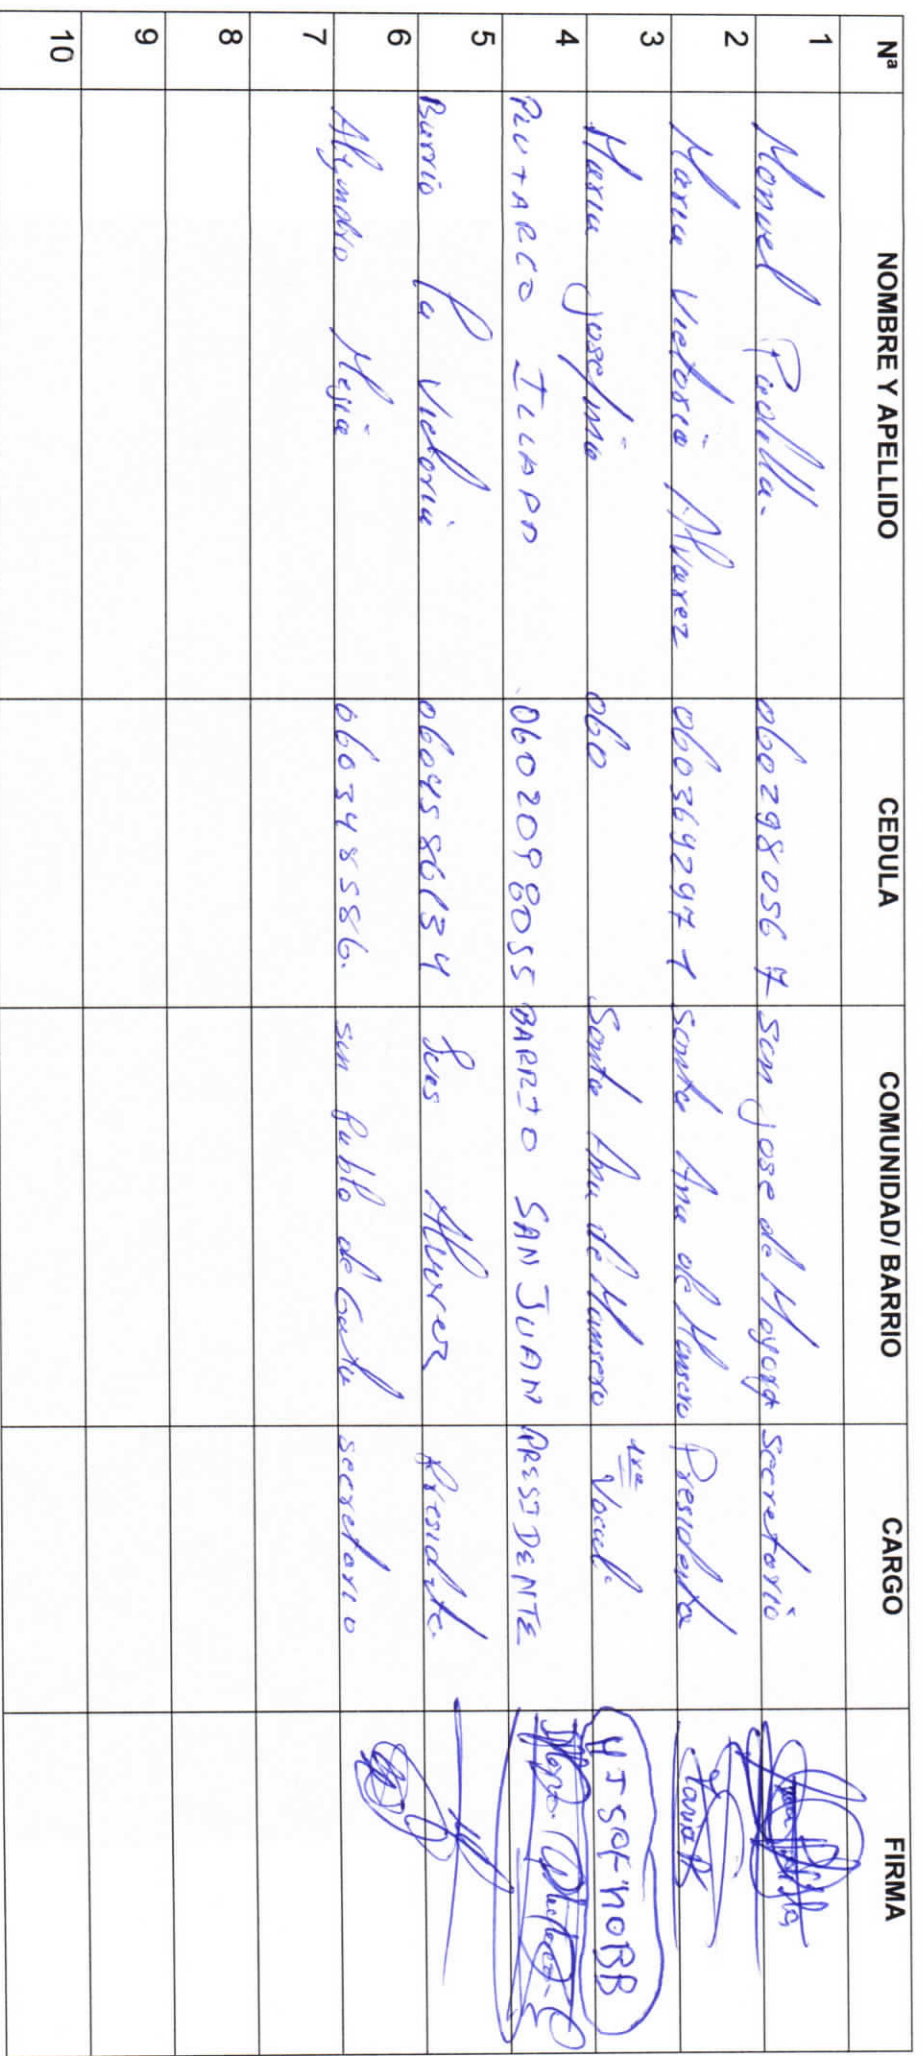 Nª NOMBRE Y APELLIDO CEDULA COMUNIDAD/ BARRIO CARGO FIRMA
1 Manuel Padilla. 0602980567 San jose de Mayorga Secretorio
2 Maria Victoria Alvarez 0603649297-1 Santa Ana de Mansero Presidenta Maria A
3 Maria josefina 060 Santa Ana de Mansero 1ra Vocal. MJSEFMOBB
4 PLUTARCO ILLAPA 0602098055 BARRIO SAN JUAN PRESIDENTE
5 Barrio la Victoria 0604586134 Luis Alvarez Presidente.
6 Alejandro Mejia 060348586. San Pablo de secretario
7
8
9
10